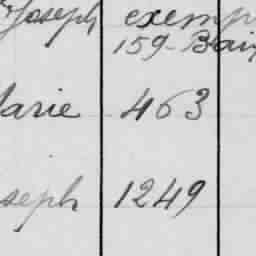 Joseph exemp
159-Bai
Marie 463
seph 1249